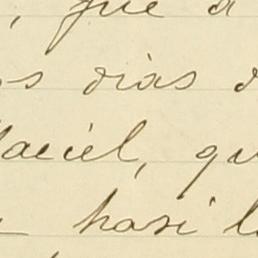 , que a
os dias d
Maciel, qu
hasi l